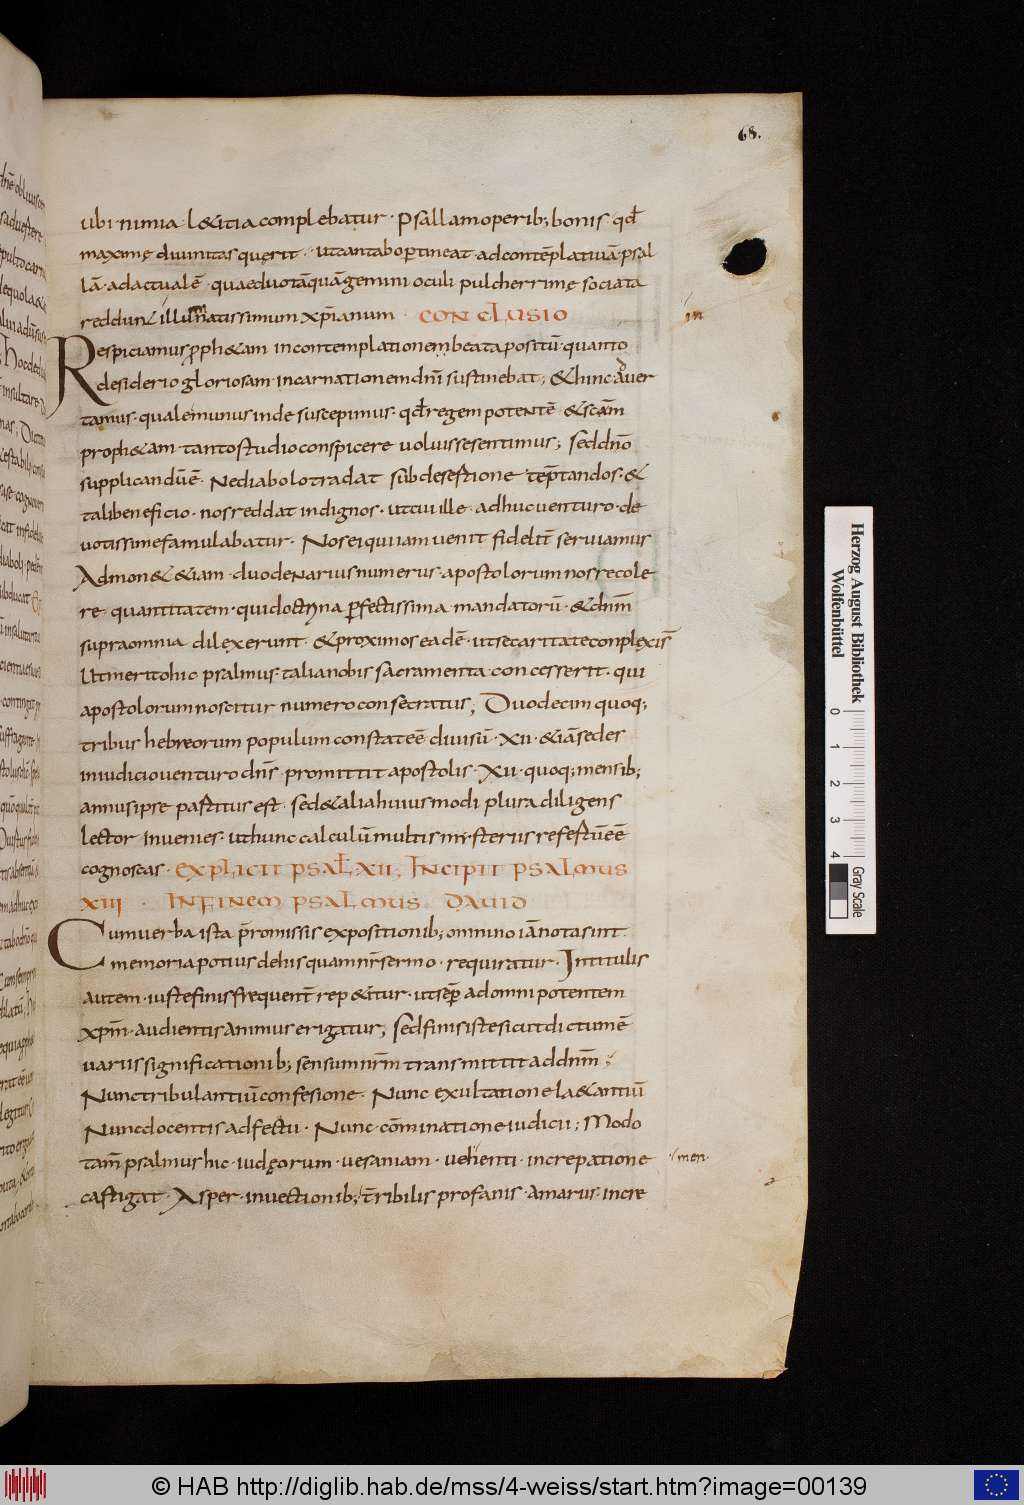 68.
ubi nimia l&itia complebatur · Psallam operib; bonis qđ
maxime diuinitas querit · ut cantabo pertineat ad contēplatiuā psal
lā · ad actualē · quae duo tāquā gemini oculi pulcherrime sociata
reddunt illuminatissimum xp̄ianum · CONCLUSIO
in
Respiciamus proph&am in contemplationem beata positū · quanto
desiderio gloriosam incarnationem dn̄i sustinebat; & hinc auer
tamus · quale munus inde suscepimus · qđ regem potentē & sc̄am
proph&am tanto studio conspicere uoluisse sentimus; sed dn̄o
supplicandū ē · Ne diabolo tradat sub desestione temptandos · &
tali beneficio · nos reddat indignos · ut cui ille adhuc uenturo · de
uotissime famulabatur · Nos ei qui iam uenit fidelit̄ seruiamus
Admon& &iam · duodenarius numerus · apostolorum nos recole
re quantitatem · qui doctrina perfectissima mandatorū · & dn̄m
supra omnia dilexerunt · & proximos eadē · ut se caritate conplexis
Ut merito hic psalmus · talia nobis sacramenta concesserit · qui
apostolorum noscitur numero consecratus; Duodecim quoq;
tribus hebreorum populum constat eē diuisū · XII · & iā sedes
in iudicio uenturo dn̄s · promittit apostolis · XII · quoq; mensib;
annus ipse partitus est · sed & alia huiusmodi plura diligens
lector inuenies · ut hunc calculū multis misteriis refertū eē
cognoscas · EXPLICIT PSAL · XII · INCIPIT PSALMUS
XIII · IN FINEM PSALMUS DAVID
Cum uerba ista praemissis expositionib; omnino iā nota sint
memoria potius de his quam nr̄ sermo · requiratur · In titulis
autem · iuste finis frequent̄ rep&itur · ut semper ad omnipotentem
xp̄m · audientis animus erigatur; Sed finis iste sicut dictum ē
uariis significationib; sensum nr̄m transmittit ad dn̄m;
Nunc tribulantiū confesione · Nunc exultatione la&antiū
Nunc docentis adfectu · Nunc cōminatione iudicii; Modo
tam̄ psalmus hic · iudęorum · uesaniam · uehenti · increpatione
men
castigat · Asper · inuectionib; t̄ribilis profanis · amarus · incre
Herzog August Bibliothek
Wolfenbüttel
0 1 2 3 4
Gray Scale
© HAB http://diglib.hab.de/mss/4-weiss/start.htm?image=00139